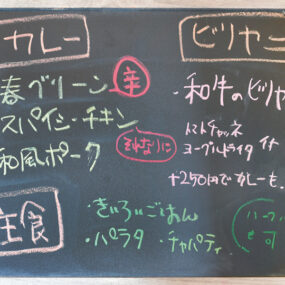 カレー
春グリーン 辛
スパイシーチキン
それなりに
和風ポーク
主食
・きいろいごはん
・パラタ ・チャパティ
ビリヤニ
・和牛のビリヤ
トマトチャツネ
ヨーグルトライタ 付
+250円でカレーも
ハーフ
も可